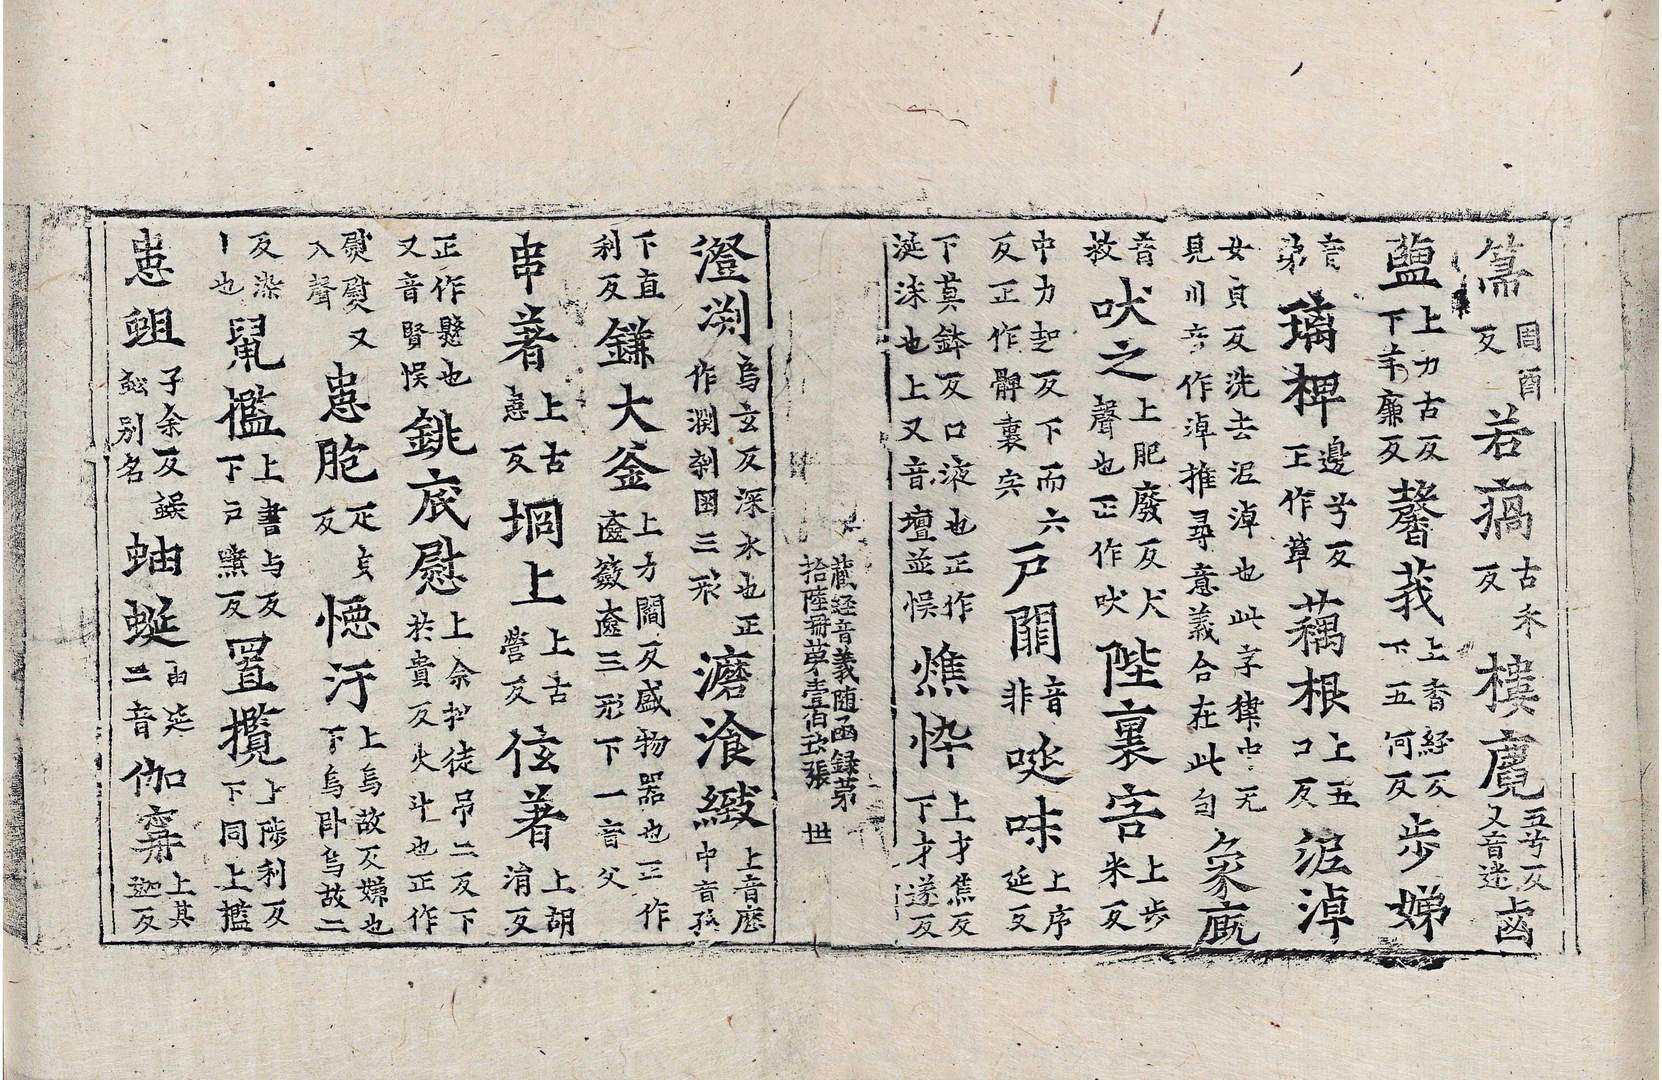 周酉反若㾎古禾反樓麑五兮反又音迷鹵
鹽上力古反下羊廉反馨莪上香経反下五何反步娣
音弟璃椑邊兮反正作萆藕根上五口反泥淖
女皃反洗去泥淖也此字律中无作淖推尋意義合在此句象廐
音救吠之上肥廢反犬聲也正作吠陛裏害上步米反
中力起反下而六反正作髀裏宍戶闈音非唌味上序延反
下莫鉢反口液也正作涎沫也上又音壇並悮燋悴上才焦反下才遂反
藏経音義随函録苐
拾陸冊苐壹伯張 世
澄渕烏玄反深水也正作淵剻囦三形澢飡緻上音歴中音孫
下直利反鎌大釜上方閻反盛物器也正作奩籢匳三形下一音父
串著上古患反堈上上古營反伭著上胡消反
正作懸也又音賢悮銚扆慰上余招徒吊二反下於貴反火斗也正作
熨熨又入聲患胞疋皃反悘汙上烏故反娣也下烏卧烏故二
反染丨也鼠㰖上書与反下戶黤反罝攬上陟利反下同上㰖
患蛆子余反蜈蚣別名蚰蜒由延二音伽寗上其迦反